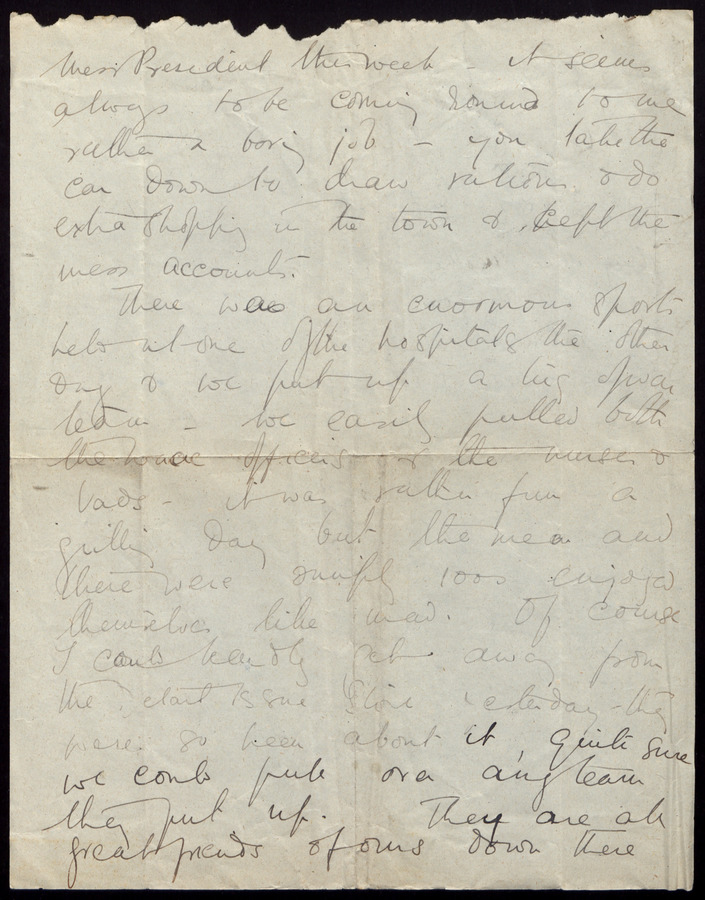 Mess President this week - it seems
always to be coming round to me
rather a boring job - you take the
car down to draw rations & do
extra shopping in the town & kept the
mess accounts.
There was an enormous sports
held at one of the hospitals the other
day & we put up a tug of war
team - we easily pulled both
the officers & the nurses &
Vads - it was rather fun a
grilling day but the men and
there were simply 1000s enjoyed
themselves like mad. Of course
I could hardly get away from
the Issue Store yesterday - they
were so keen about it, quite sure
we could pull over any team
they put up. They are all
great friends of ours down there